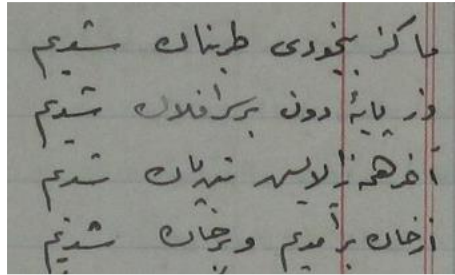 ما کز بیخودی طربناک شدیم
وز پایهٔ دون برسر افلاک شدیم
آخر همه زآلایس تن پاک شدیم
از خاک برآمدیم و بر خاک شدیم